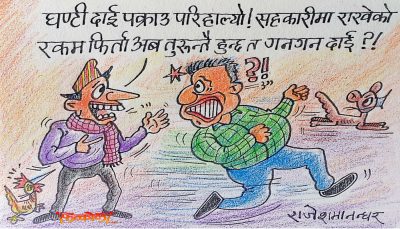 घण्टी दाई पक्राउ परिहाल्यो! सहकारीमा राखेको
रकम फिर्ता अब तुरुन्तै हुन्छ त गनगन दाई ?!
?!
राजेशमानन्धर